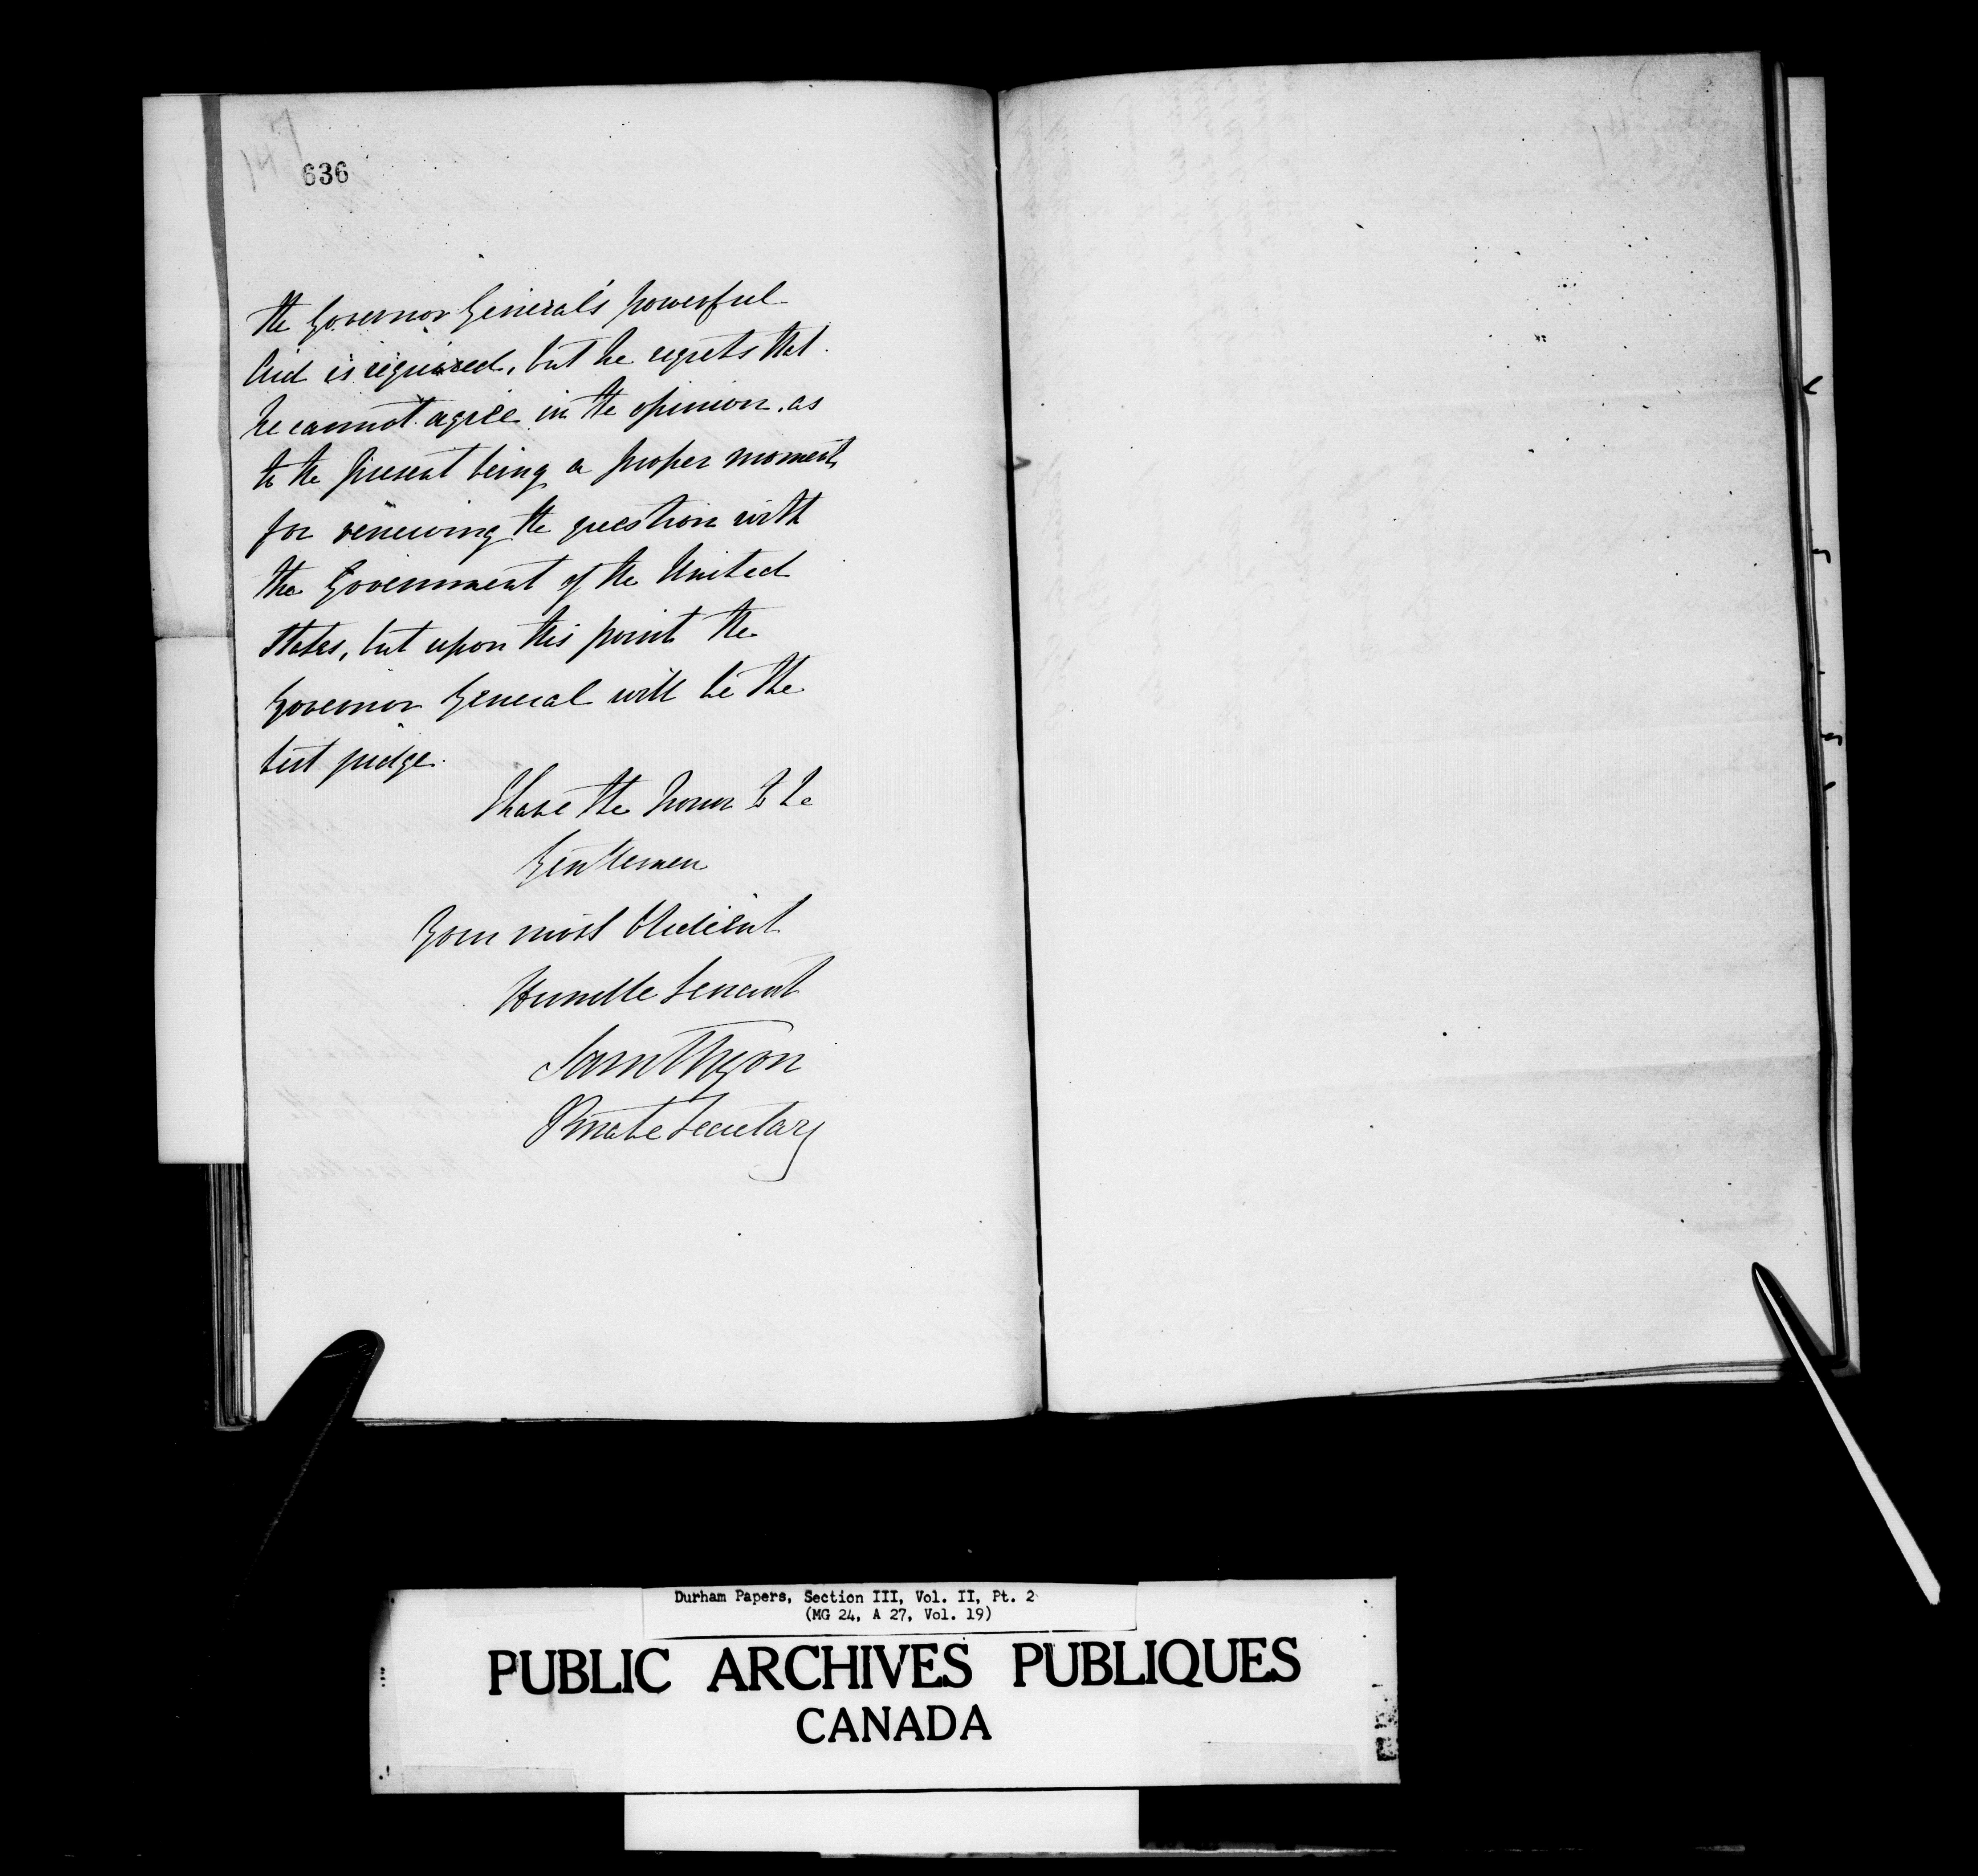 636
the Governor General's powerful
Aid is required, but he regrets that
he cannot agree in the opinion, as
to the present being a proper moment
for renewing the question with
the Government of the United
States, but upon this point the
Governor General will be the
best judge.
I have the honor to be
Gentlemen
Your most Obedient
Humble Servant
Private Secretary
Durham Papers, Section III, Vol. II, Pt. 2
(MG 24, A 27, Vol. 19)
PUBLIC ARCHIVES PUBLIQUES
CANADA